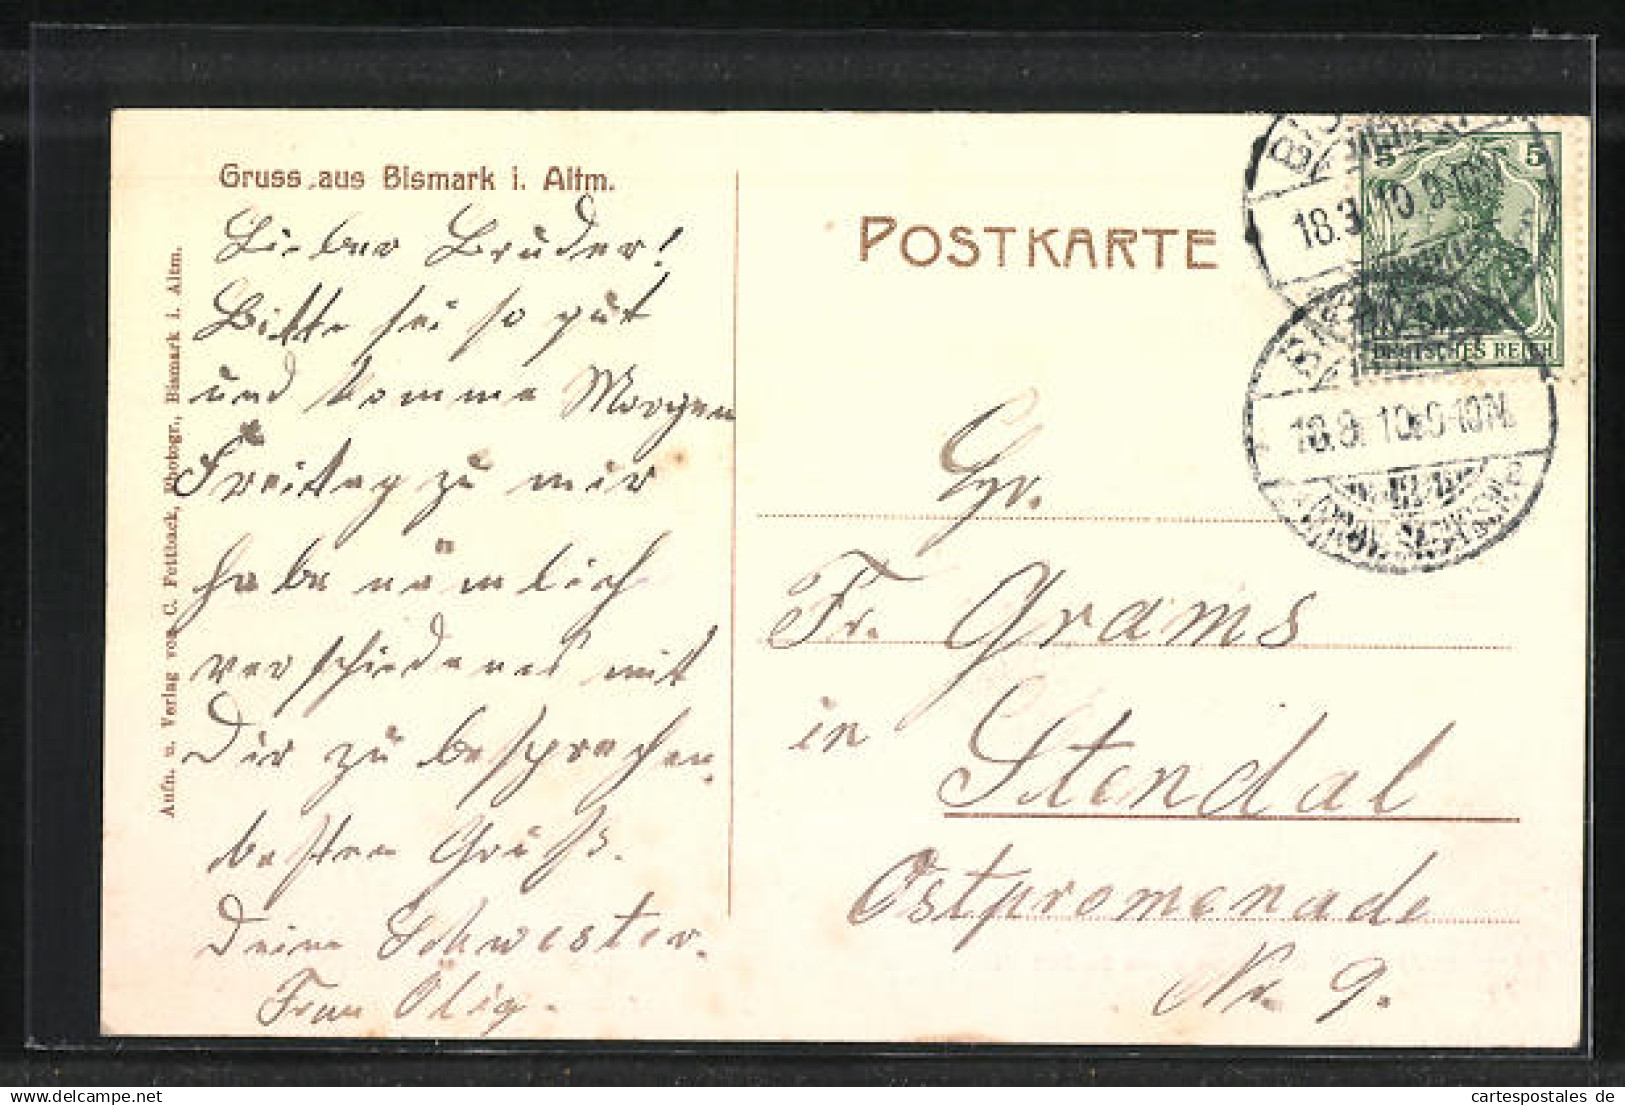 Gruss aus Bismark i. Altm.
Lieber Bruder!
Bitte sei so gut
und komme Morgen
Freitag zu mir
habe nämlich
verschiedenes mit
Dir zu besprechen.
besten Gruß.
Deine Schwester.
Frau
Aufn. u. Verlag von C. Fettback, Photogr., Bismark i. Altm.
POSTKARTE
5
DEUTSCHES REICH
18.3.10.9-10N.
18.3.10.9-10N.
Fr. Grams
in
Stendal
Ostpromenade
Nr. 9.
cartespostales de